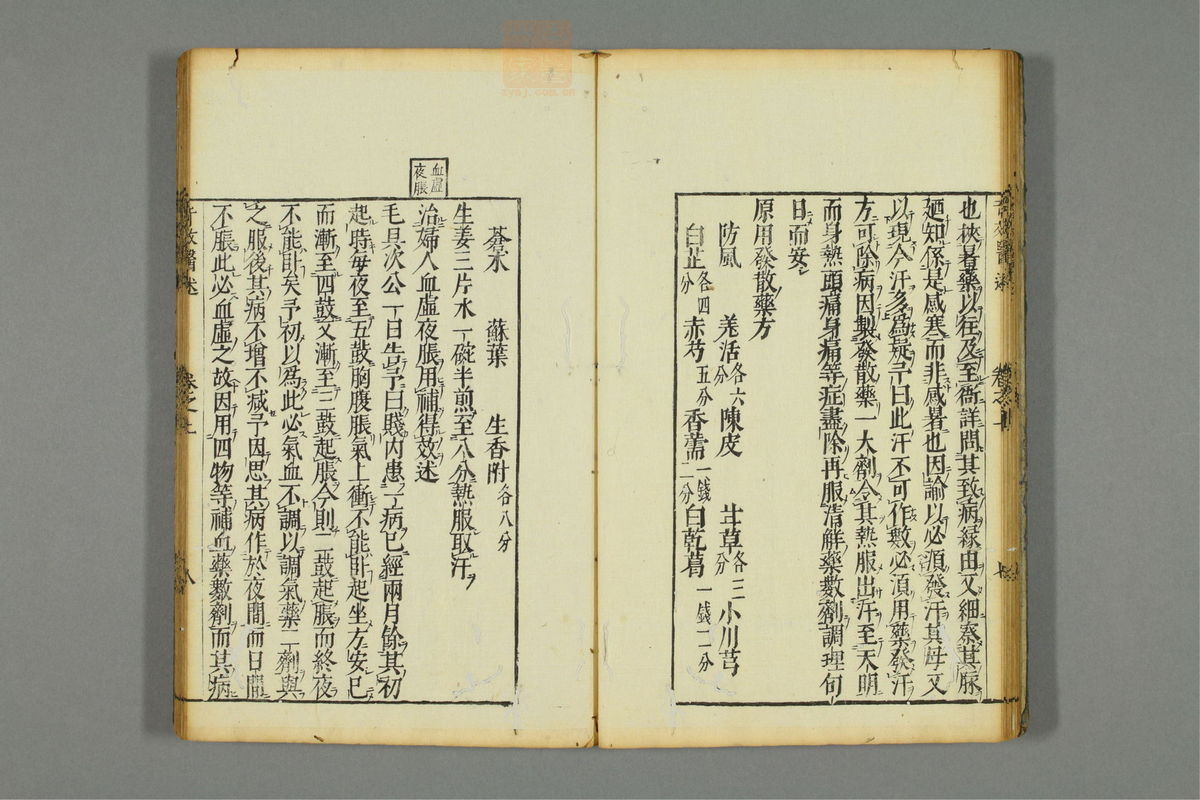 也挾暑藥以往及至衙詳問其致病緣由又細察其脉
廼知係是感寒而非感暑也因諭以必須發汗其母又
以現今汗多爲疑予曰此汗不可作數必須用藥發汗
方可除病因製發散藥一大劑令其熱服出汗至天明
而身熱頭痛身痛等症盡除再服清解藥數劑調理旬
日而安
原用發散藥方
防風 羌活各六分 陳皮 甘草各三分 小川芎
白芷各四分 赤芍五分 香薷一錢二分 白乾葛一錢二分
蒼朮 蘇葉 生香附各八分
生姜三片水一碗半煎至八分熱服取汗
血虛夜脹
治婦人血虛夜脹用補得效述
毛具次公一日告予曰賤内患一病已經兩月餘其初
起時每夜至五鼓胸腹脹氣上衝不能卧起坐方安已
而漸至四鼓又漸至三鼓起脹今則二鼓起脹而終夜
不能卧矣予初以爲此必氣血不調以調氣藥二劑與
之服後其病不增不减予因思其病作於夜間而日間
不脹此必血虛之故因用四物等補血藥數劑而其病